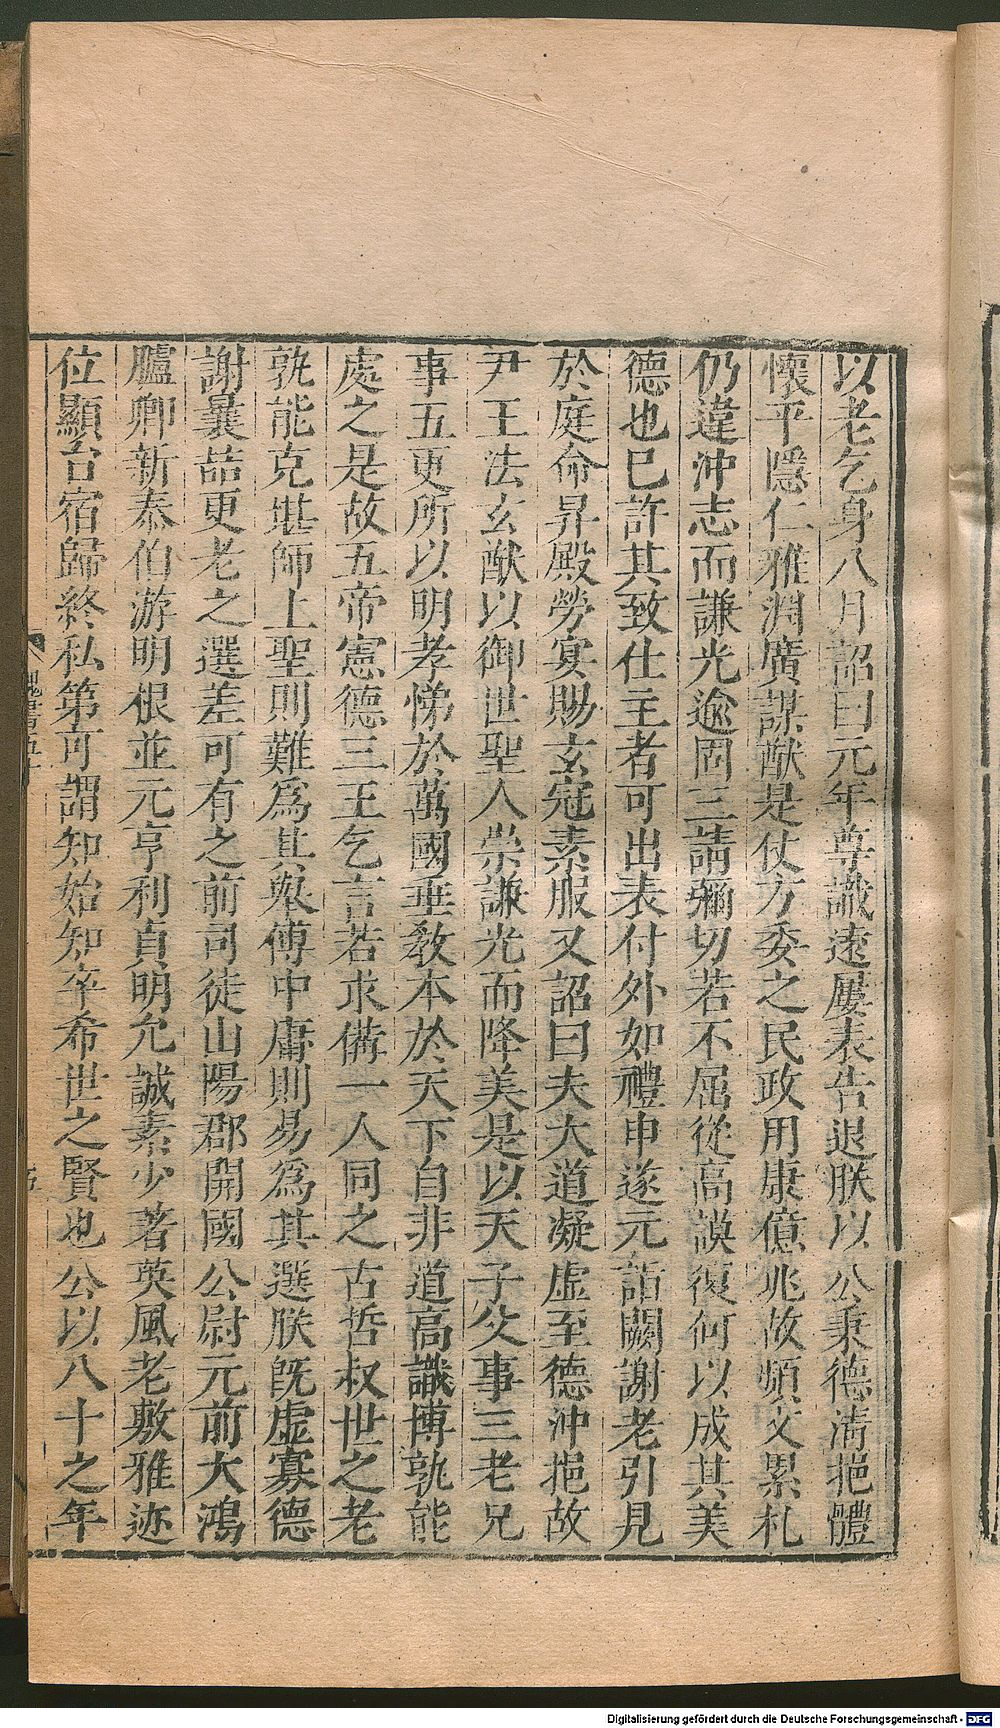 以老乞身八月詔曰元年尊識遠屢表告退朕以公秉德清挹體
懷平隱仁雅淵廣謀猷是仗方委之民政用康億兆故頻文累札
仍違沖志而謙光逾固三請彌切若不屈從高謨復何以成其美
德也已許其致仕主者可出表付外如禮申遂元詣闕謝老引見
於庭命昇殿勞宴賜玄冠素服又詔曰夫大道凝虛至德沖挹故
尹王法玄猷以御世聖人崇謙光而降美是以天子父事三老兄
事五更所以明孝悌於萬國垂教本於天下自非道高識博孰能
處之是故五帝憲德三王乞言若求備一人同之古哲叔世之老
孰能克堪師上聖則難爲其舉傅中庸則易爲其選朕旣虛寡德
謝曩喆更老之選差可有之前司徒山陽郡開國公尉元前大鴻
臚卿新泰伯游明根並元亨利貞明允誠素少著英風老敷雅迹
位顯台宿歸終私第可謂知始知卒希世之賢也公以八十之年
魏書五十
Digitalisierung gefördert durch die Deutsche Forschungsgemeinschaft - DFG